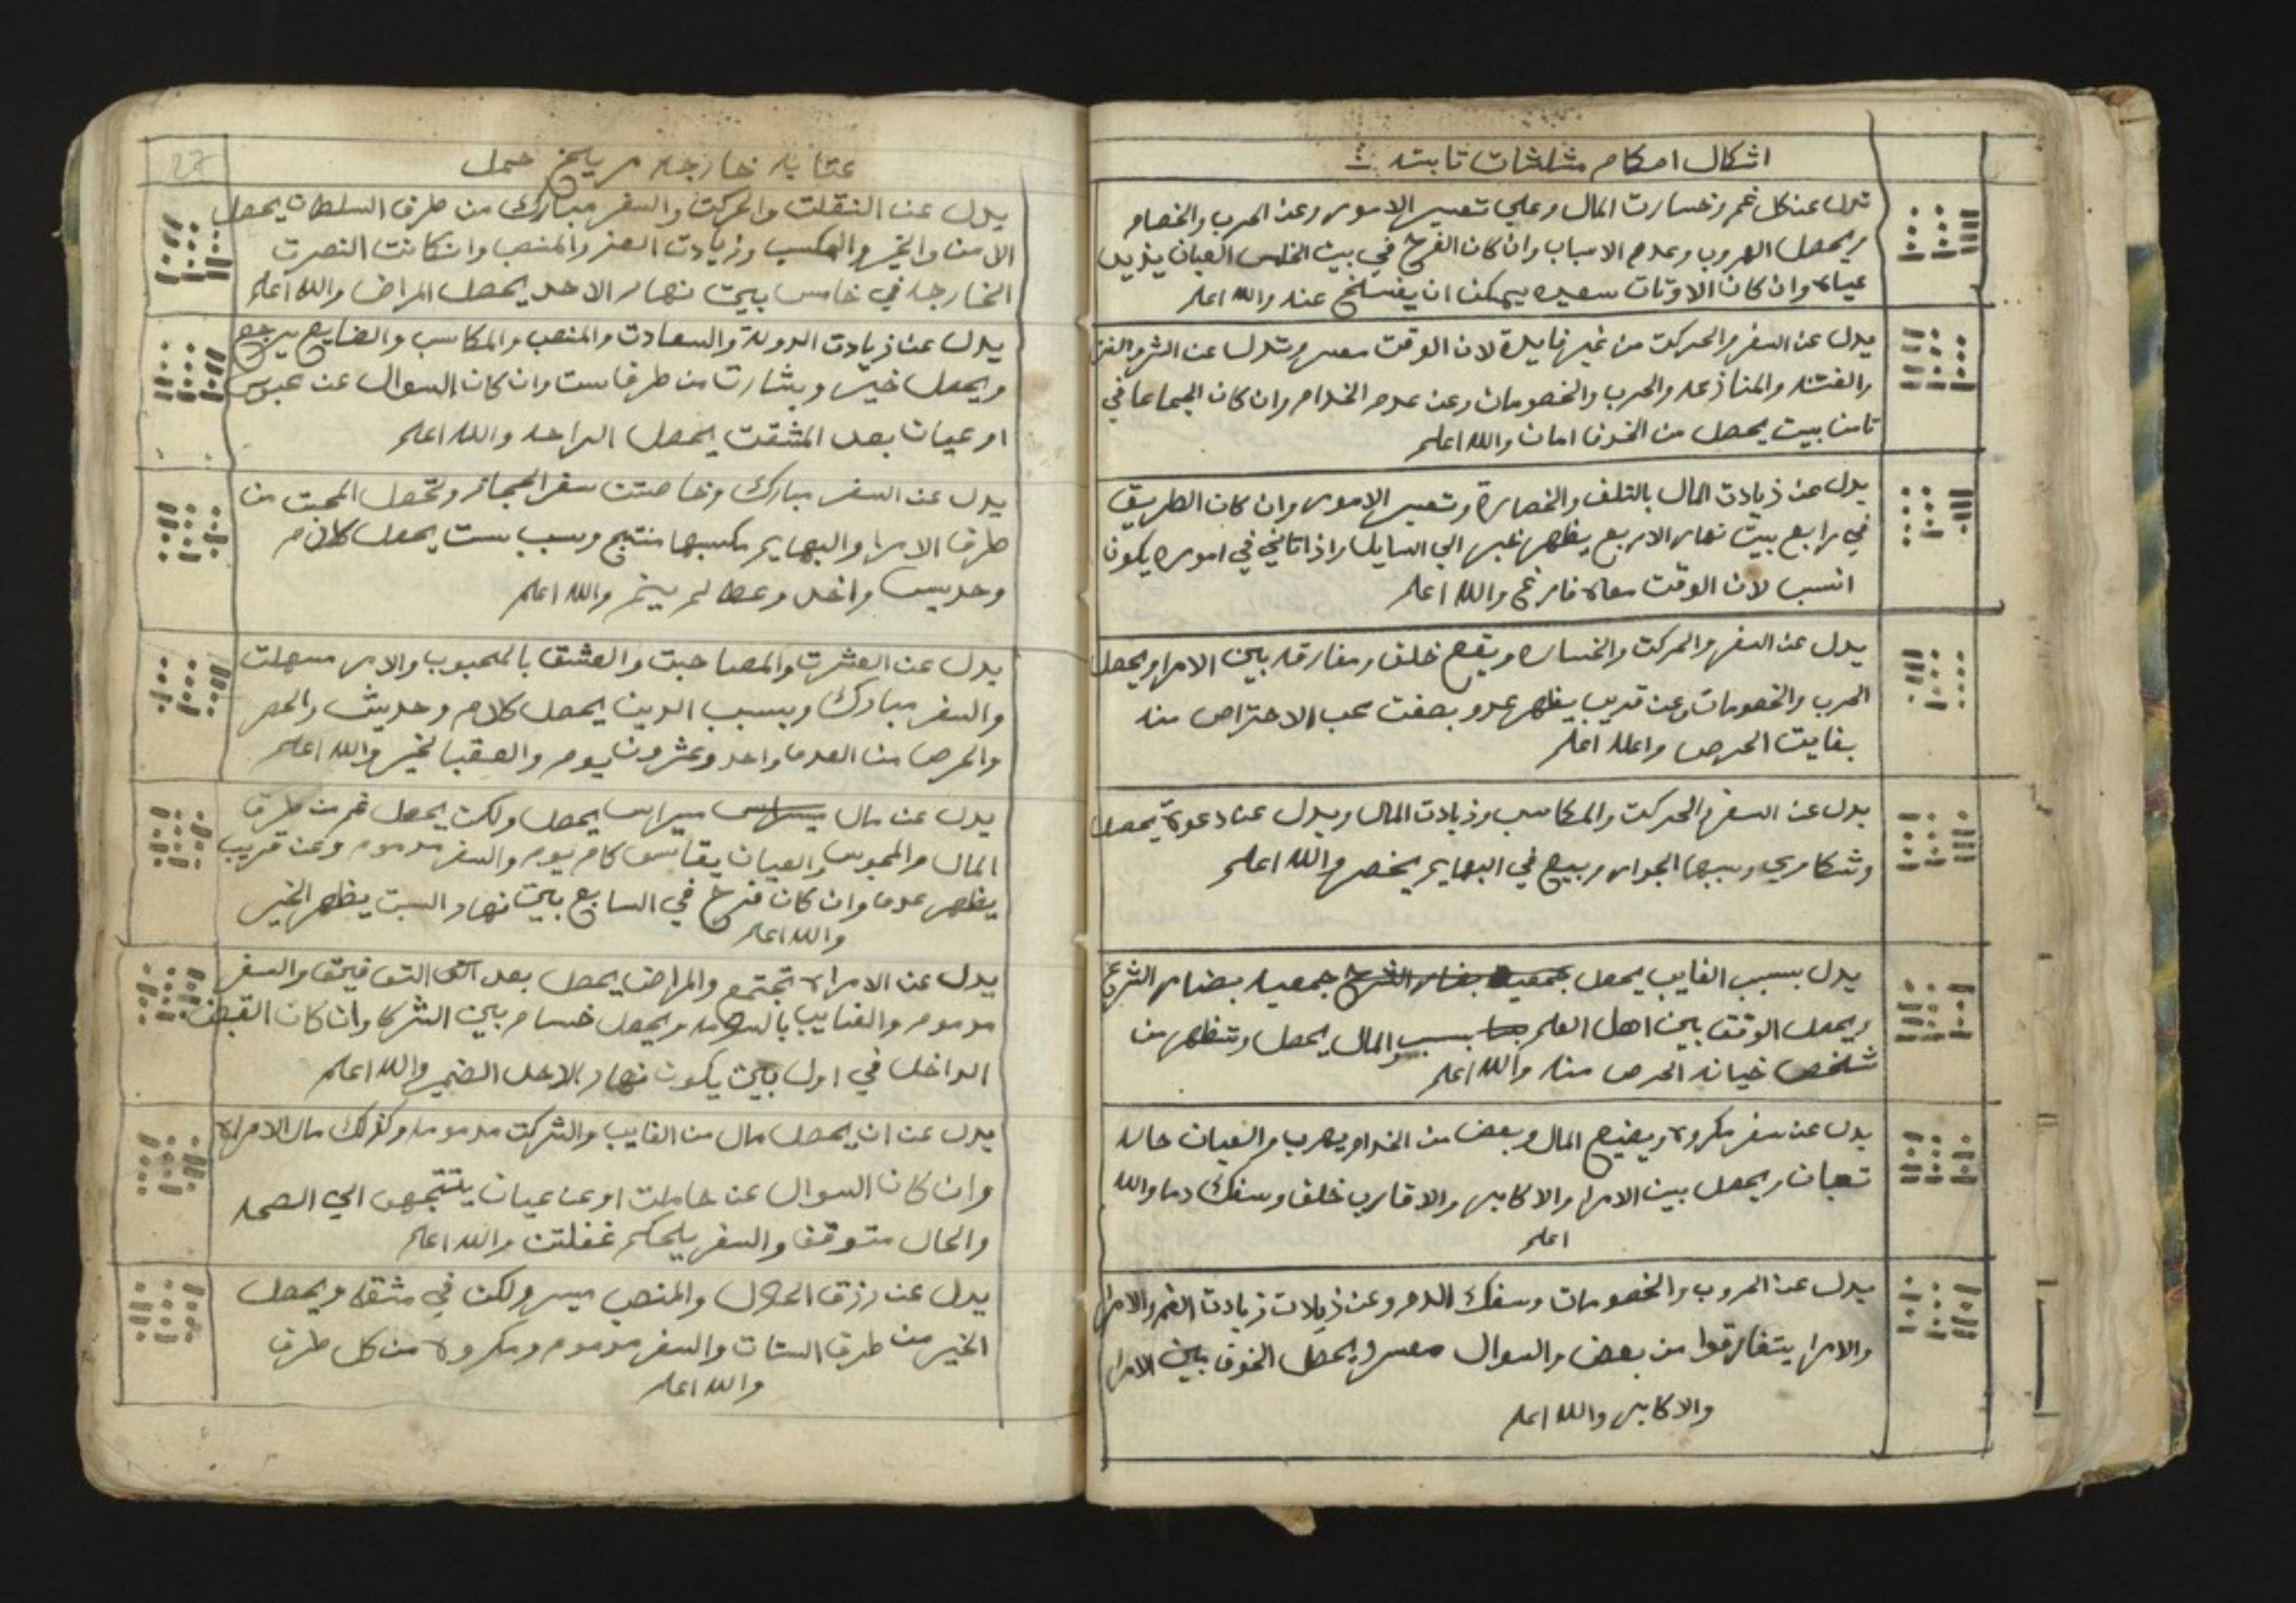 اشكال احكام مثلثات ثابته
تدل عن كل غم وخسارت المال وعلي تعسير الامور وعن الحرب والخصام
ويحصل الهروب وعدم الاسباب وان كان الفرح في بيت الخامس العيان يزيد
عياه وان كان الاوتات سعيده يمكن ان يفسلخ عنه والله اعلم
يدل عن السفر والحركت من غير فايدة لان الوقت معسر وتدل عن الشر
والفتنه والمنازعه والحرب والخصومات وعن عدم الخدام وان كان الجماعا في
ثامن بيت يحصل من الخوف امان والله اعلم
يدل عن زيادت المال بالتلف والخصارة وتعسير الامور وان كان الطريق
في رابع بيت نهار الاربع يظهر خبر الي السايل اذا تاني في اموره يكون
انسب لان الوقت معاه فارغ والله اعلم
يدل عن السفر والحركت والخساره ويقع خلف ومفارقه بين الامرا ويحصل
الحرب والخصومات وعن قريب يظهر عدو بصفت محب الاحتراص منه
بغايت الحرص والله اعلم
يدل عن السفر والحركت والمكاسب وزيادت المال ويدل عن دعوة يحصل
وشكاوي وسببها الجوار وبيع في البهايم يخصر والله اعلم
يدل بسبب الغايب يحصل جمعيه بضار الشرع جمعيه بضار الشرع
ويحصل الوقف بين اهل العلم بسبب المال يحصل وتظهر من
شخص خيانه الحرص منه والله اعلم
يدل عن سفر مكروه ويضيع المال وبعض من الخدام يهرب والعيان حاله
تعبان ويحصل بين الامرا والاكابر والاقارب خلف وسفك دما والله
اعلم
يدل عن الحروب والخصومات وسفك الدم وعن زيادت الغم والامرا
والامرا يتفارقوا من بعض والسوال معسر ويحصل الخوف بين الامرا
والاكابر والله اعلم
27
عتابه خارجه مريخ حمل
يدل عن النقلت والحركت والسفر مبارك من طرف السلطان يحصل
الامن والخير والمكسب وزيادت العز والمنصب وان كانت النصرت
الخارجه في خامس بيت نهار الاحد يحصل المراض والله اعلم
يدل عن زيادت الدولة والسعادت والمنصب والمكاسب والضايع يرجع
ويحصل خير وبشارت من طرف ست وان كان السوال عن محبوس
او عيان بعد المشقت يحصل الراحه والله اعلم
يدل عن السفر مبارك وخاصتن سفر الحجاز وتحصل المحبت من
طرف الامرا والبهايم مكسبها منتج وبسبب ست يحصل كلام
وحديس واخد وعطا لم يتم والله اعلم
يدل عن العشرت والمصاحبت والعشق بالمحبوب والامر مسهلت
والسفر مبارك وبسبب الدين يحصل كلام وحديث والحصر
والحرص من العدما واحد وعشرون يوم والعقبا لخير والله اعلم
يدل عن مال ميراس يحصل ولكن يحصل غم من طرف
المال والمحبوس والعيان يقاسي كام يوم والسفر مدموم وعن قريب
يظهر عدما وان كان فرح في السابع بيت نهار السبت يظهر الخير
والله اعلم
يدل عن الامراه تجتمع والمراض يحصل بعد التي التوافيق والسفر
مدموم والغايب بالسلامه ويحصل خسام بين الشركا وان كان القبض
الداخل في اول بيت يكون نهار الاحد الضمير والله اعلم
يدل عن ان يحصل مال من الغايب والشركت مدمومه وكذلك مال الامراه
وان كان السوال عن حاملت او عن عيان يتتجهون الي الصحه
والحال متوقف والسفر يلحكم غفلتن والله اعلم
يدل عن رزق الحلال والمنصب ميسر ولكن في مشقه ويحصل
الخير من طرف الستات والسفر مدموم ومكروه من كل طرف
والله اعلم